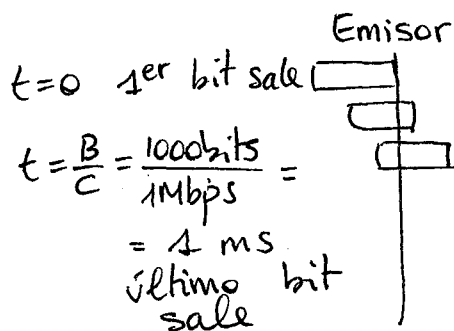 Emisor
t=0 1er bit sale
t = B/C = 1000bits/1Mbps =
= 1 ms
último bit
sale